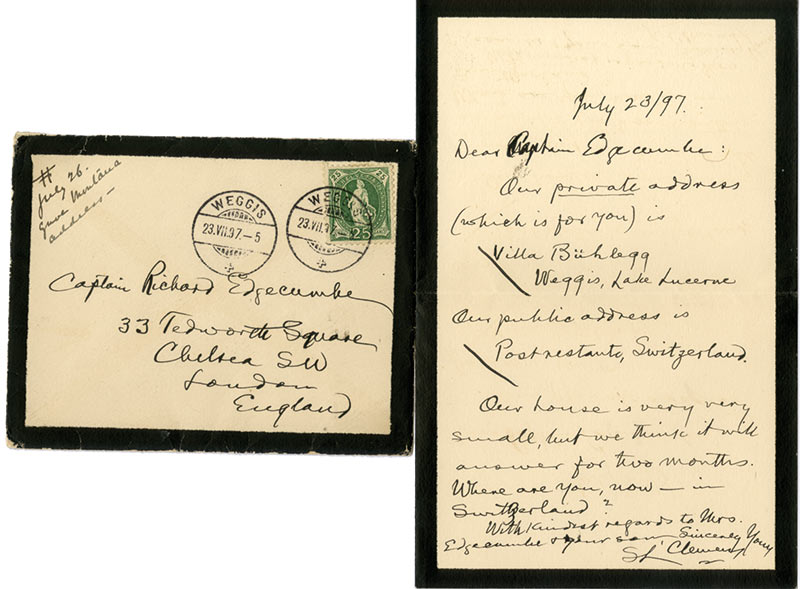 #
July 26.
address—
WEGGIS
23.VII.97.–5
WEGGIS
23.VII.97
25 25
25
Captain Richard Edgecumbe
33 Tedworth Square
Chelsea SW
London
England
July 23/97.
Dear Captain Edgecumbe:
Our private address
(which is for you) is
Villa Bühlegg
Weggis, Lake Lucerne
Our public address is
Postrestante, Switzerland.
Our house is very very
small, but we think it will
answer for two months.
Where are you, now — in
Switzerland?
With kindest regards to Mrs.
Edgecumbe & your son Sincerely Yours
SL Clemens